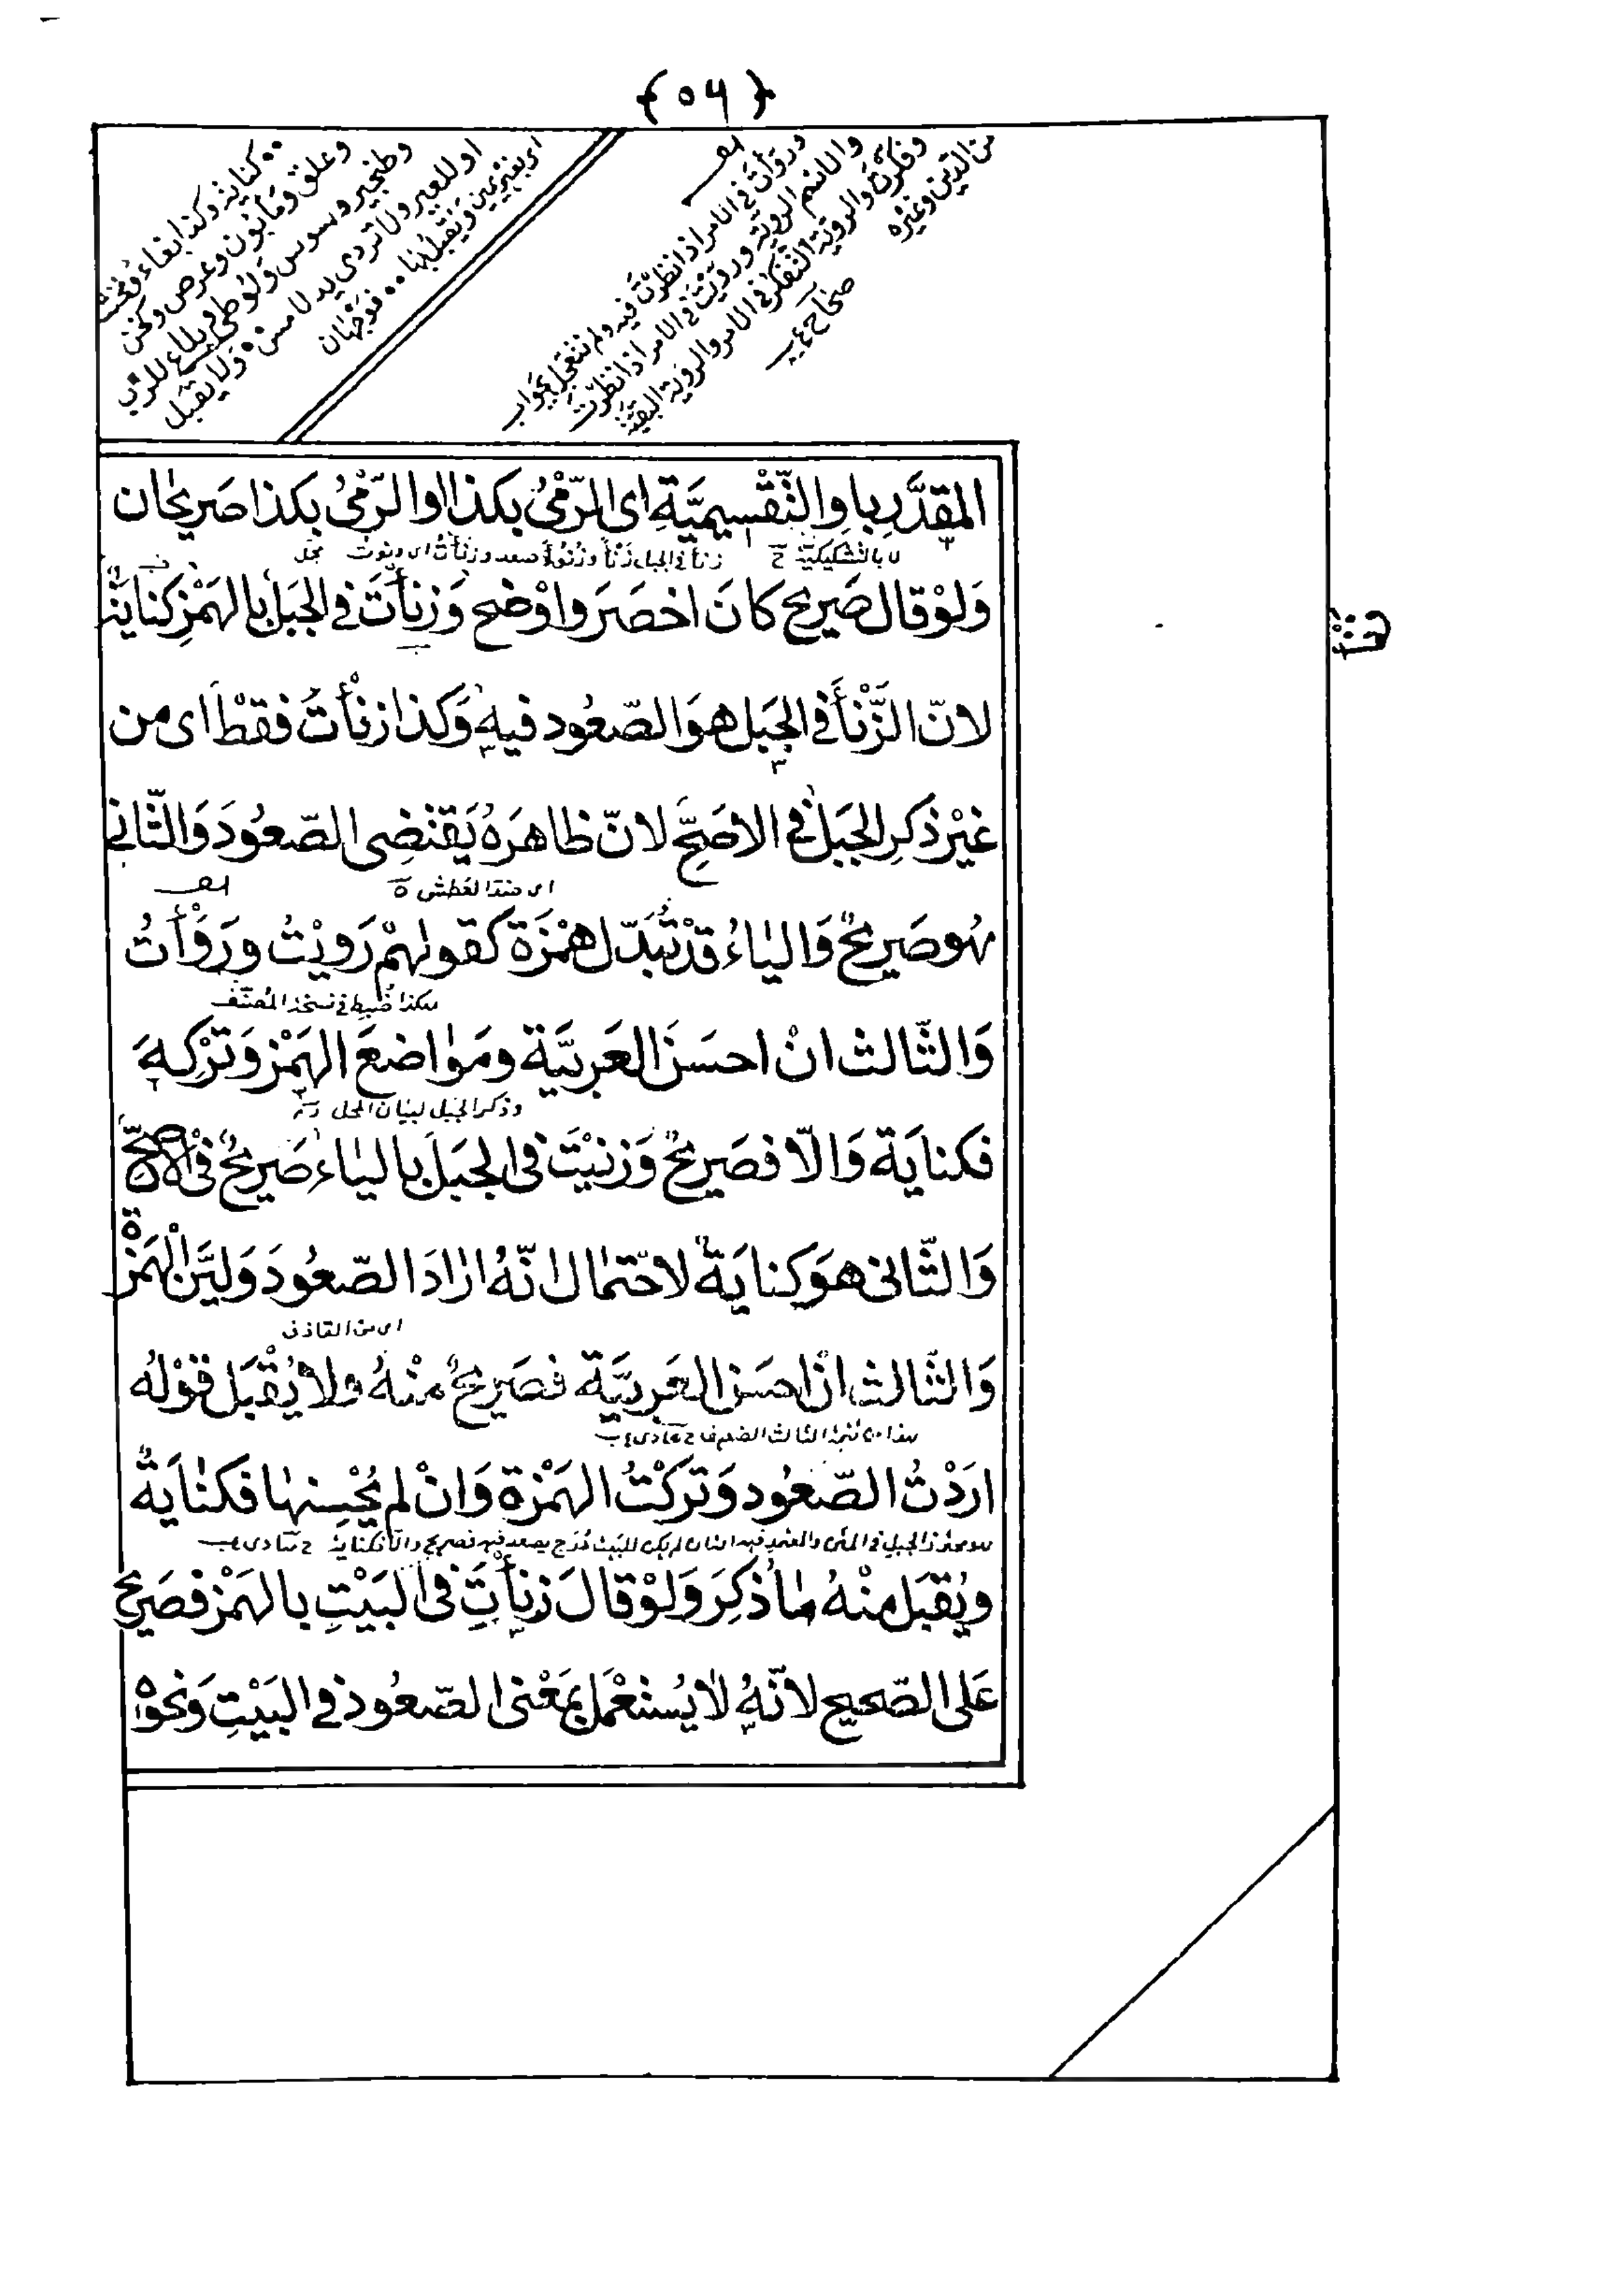 {٥٦}
كناية وكذا بغاء ومخنث
وعلق ومأبون وعرص وكخن
وطنجير وسوس ولوطي وبلاء للزب
او للعير ولا تردى يد لامس ولا يقبل
اى بغير يمين ويقبل بها فوجهان
وروّأت فى الامر اذا نظرت فيه ولم تتعجل بجواب
والاسم الروية وروّيت فى الامر اذا نظرت
وفكرت والروية التفكر فى الامر والروية البقية
من الدين وغيره
صحاح
المقدَّر باو التّقسيميَّة اى الرّمْىُ بكذا او الرّمْىُ بكذا صريحان
لا بالتشكيكية
زنأ فى الجبل زنأ وزنوءا صعد وزنأت اى دنوت مجمل
وَلوْقال صَريح كانَ اخصَر واوْضح وَزنأتَ فى الجبَل بالهَمْزِ كنايَة
لانّ الزّنْأ فى الجبَل هوَ الصّعُود فيهِ وَكذا زنأْتَ فقطْ اى من
غيْر ذكرِ الجبَل فى الاصَحِّ لانّ ظاهرَهُ يَقتضِى الصّعُودَ وَالثّانى
اى ضدّ العطش
هُو صَريحٌ وَاليٰاءُ قدْ تُبدّل هَمْزَة كقولهمْ رَويْتُ ورَوَّأتُ
هكذا ضبط فى نسخة المصنّف
وَالثّالث انْ احسَنَ العَربيَّة ومَوٰاضعَ الهَمْز وَترْكهَ
وذكر الجبل لبيان المحل
فكنايَة وَالاّ فصَريحٌ وَزنيْتَ فى الجبَل باليٰاء صَريحٌ فى الاصحّ
وَالثّانى هوَ كنايَة لاحْتمال انّهُ ارٰادَ الصّعُودَ وَليَّن الهَمْزة
اى من القاذف
وَالثّالث انْ احسَنَ العَربيَّة فصَريحٌ منْهُ ولا يُقْبَل قوْلهُ
ارَدْتُ الصّعُود وَتركْتُ الهَمْزة وَانْ لم يُحْسِنهٰا فكنٰايَةٌ
ويُقبَل منْهُ مٰا ذُكِرَ وَلوْ قالَ زنأتِ فى البَيْتِ بالهَمْز فصَريح
عَلى الصّحيح لانّهُ لا يُستعْمَل بمَعْنى الصّعُود فى البَيْتِ وَنحْوه